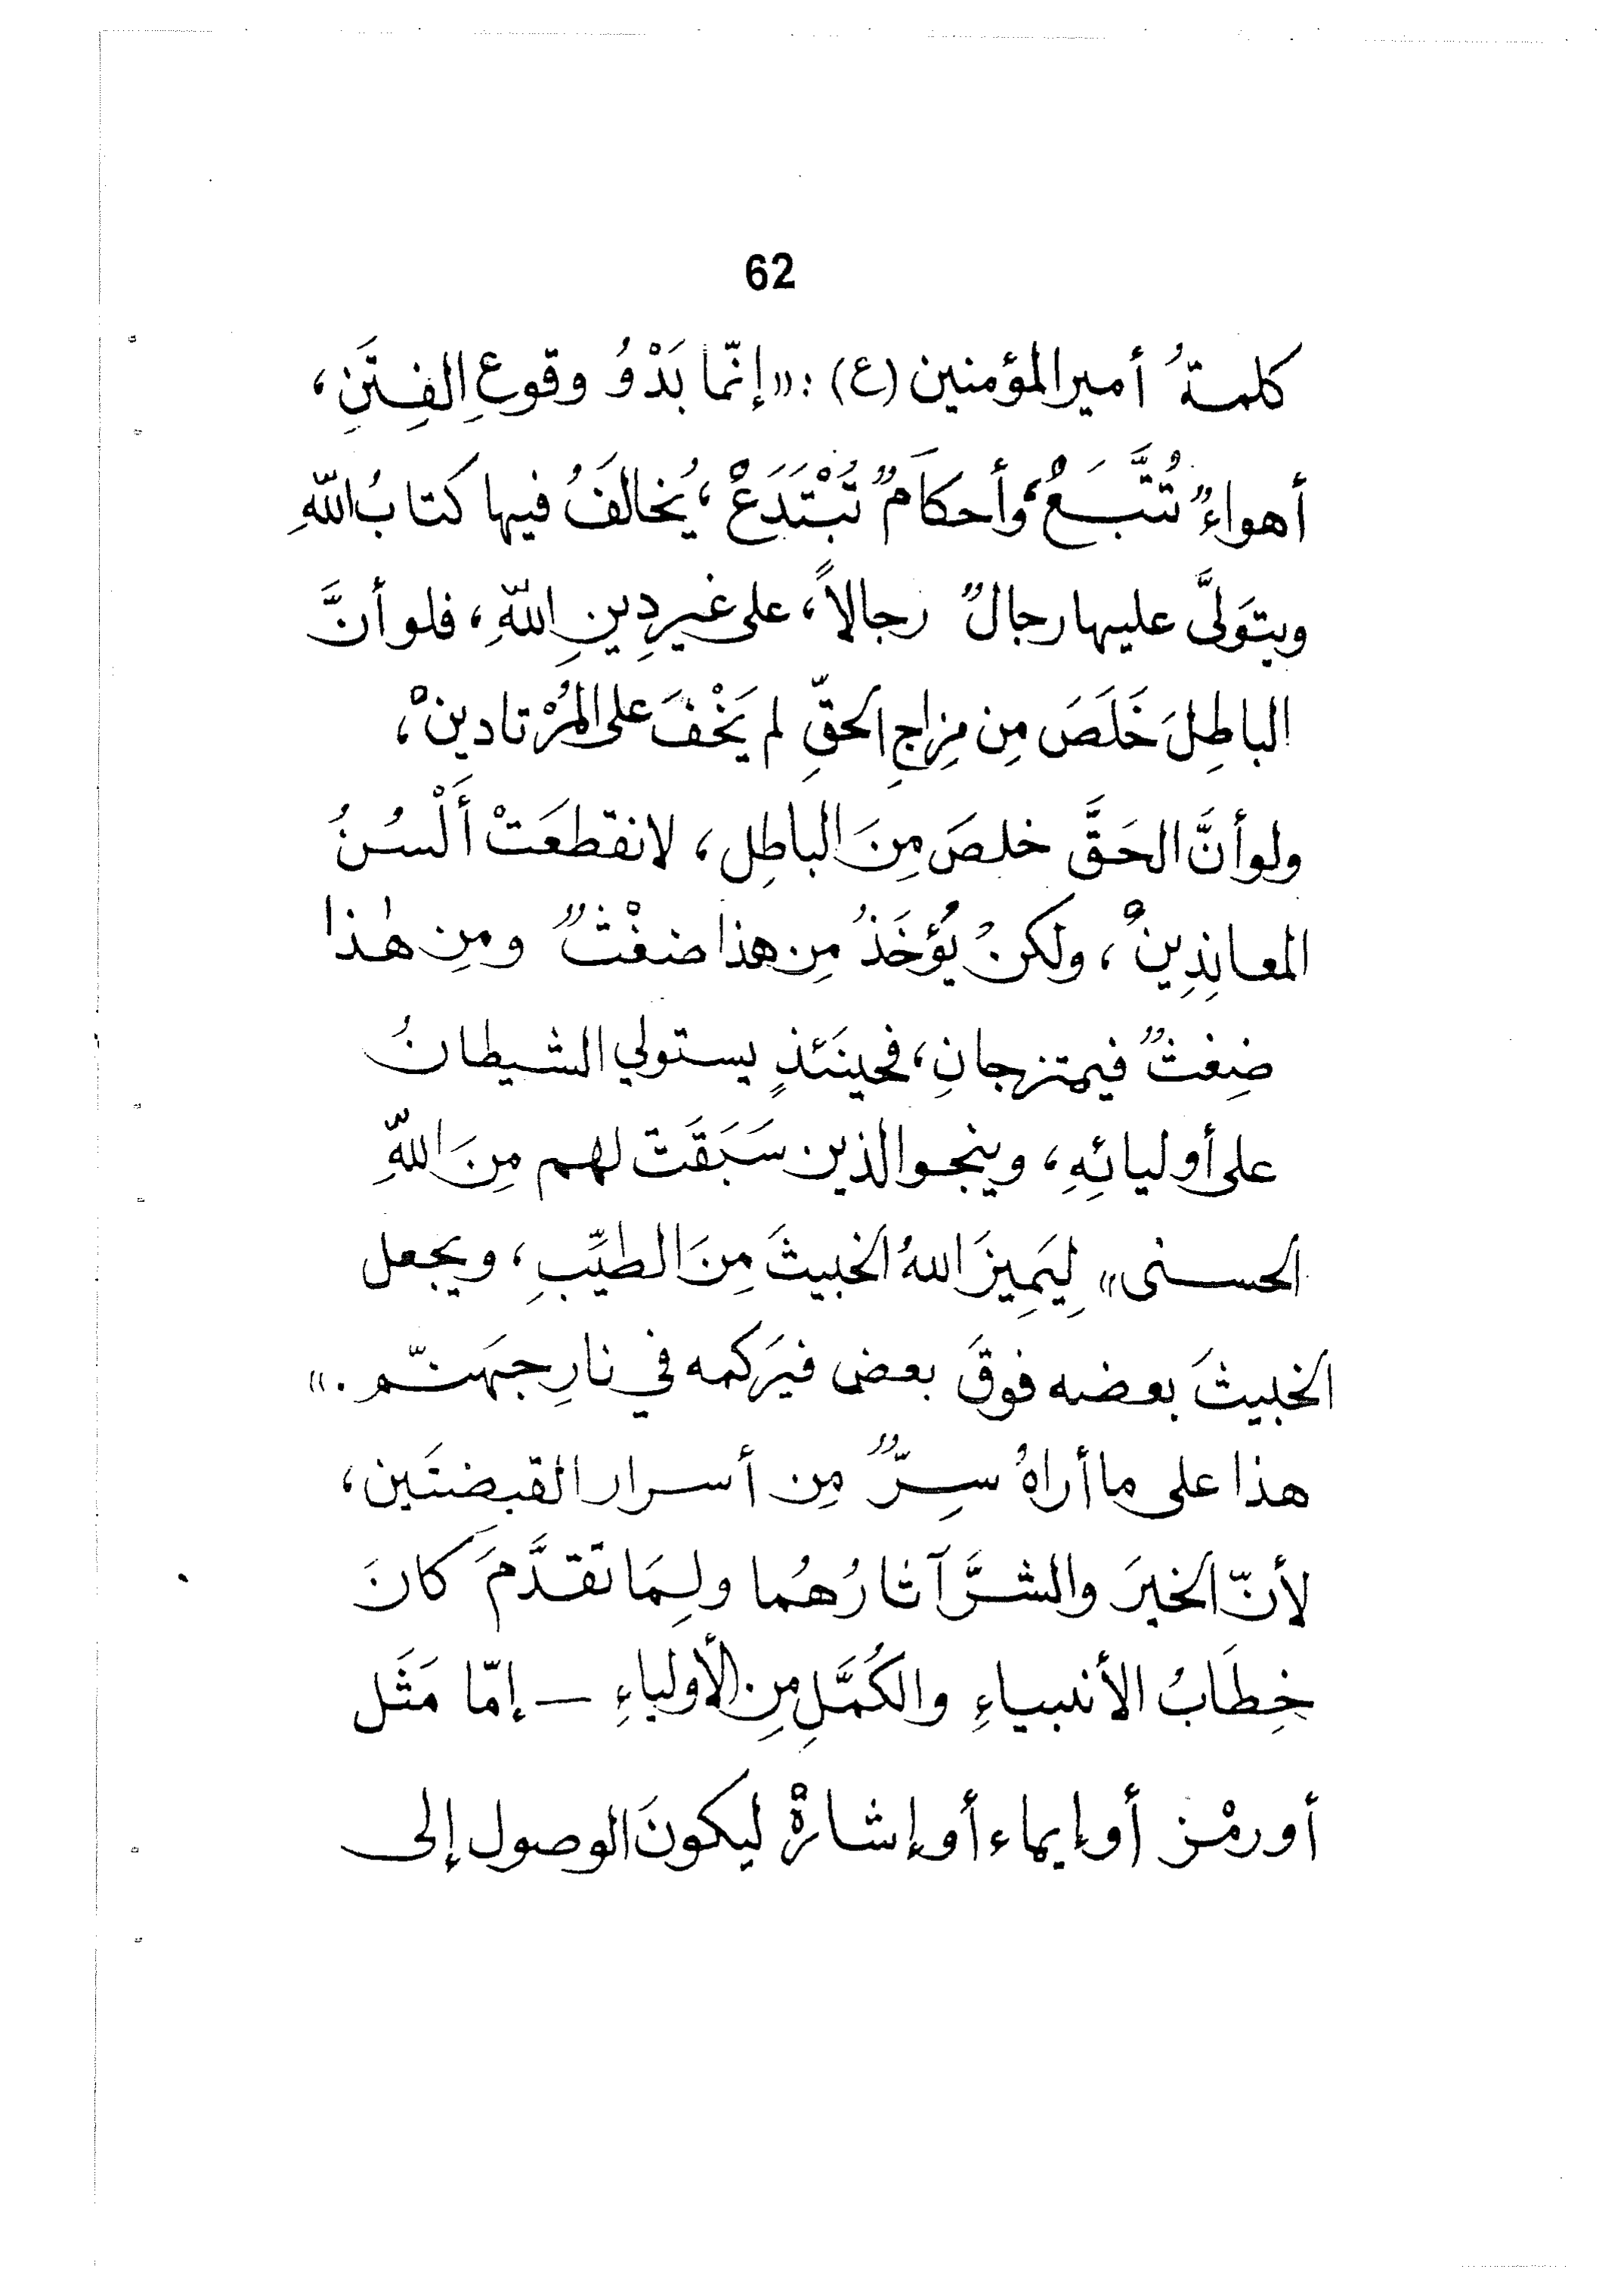 62
كلمةُ أمير المؤمنين (ع) : «إنّما بَدْوُ وقوعِ الفِتَنِ،
أهواءٌ تُتَّبَعُ، وأحكامٌ تُبْتَدَعُ، يُخالَفُ فيها كتابُ اللّهِ
ويتَولىَّ عليها رجالٌ رجالاً، على غيرِ دِينِ اللّهِ، فلو أنَّ
الباطِلَ خَلَصَ مِن مِزاجِ الحقِّ لم يَخْفَ على المُرْتادينْ،
ولو أنَّ الحَقَّ خلصَ مِنَ الباطِلِ، لانقطعَتْ أَلْسُنُ
المعانِدِينْ، ولكنْ يُؤخَذُ مِن هذا ضغْثٌ ومِن هٰذا
ضِغثٌ فيمتزجانِ، فحينَئذٍ يستولي الشيطانُ
على أوليائِهِ، وينجو الذين سَبَقَتْ لهم مِنَ اللّهِ
الحسنى» لِيَمِيزَ اللهُ الخبيثَ مِنَ الطيِّبِ، ويجعل
الخبيثَ بعضه فوقَ بعض فيَركمه في نارِ جهَنّم .»
هذا على ما أراهُ سِرٌّ مِن أسرار القبضتَين،
لأنّ الخيرَ والشرَّ آثارُهُما ولِمَا تقدَّمَ كانَ
خِطَابُ الأنبياءِ والكُمَّلِ مِن الأولياءِ — إمّا مَثَل
أو رمْز أو إيماء أو إشارة ليكونَ الوصول إلى